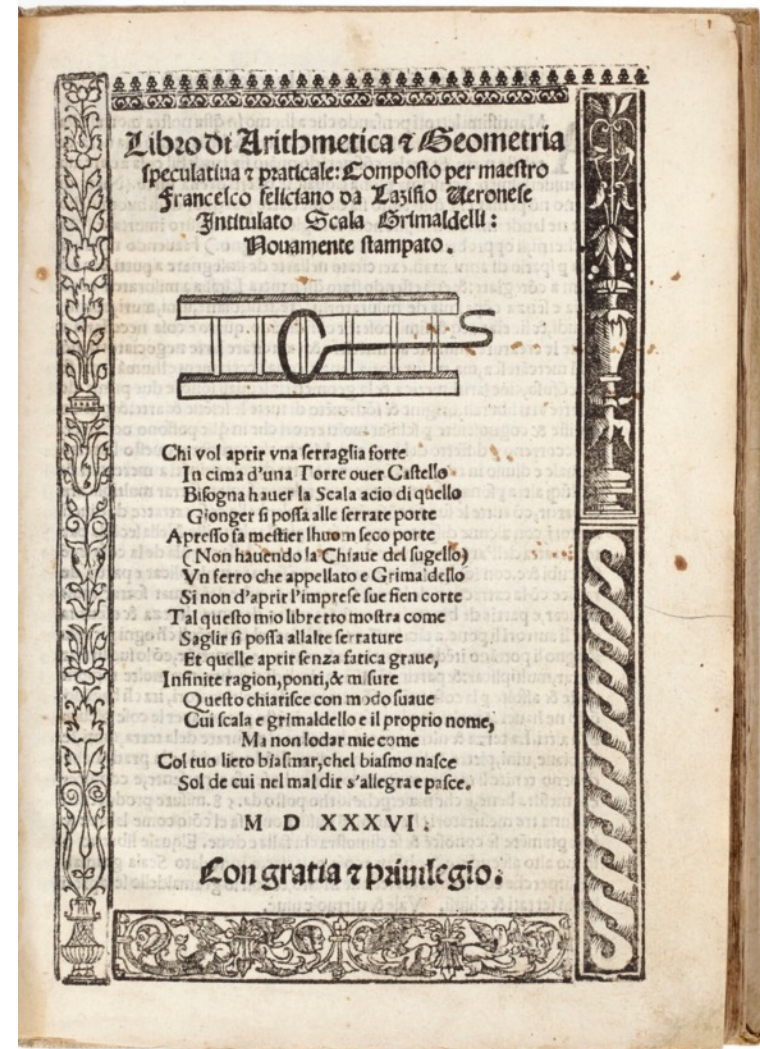 Libro di Arithmetica ⁊ Geometria
speculatiua ⁊ praticale: Composto per maestro
Francesco feliciano da Lazisio Ueronese
Intitulato Scala Grimaldelli:
Nouamente stampato.
Chi vol aprir vna serraglia forte
In cima d'una Torre ouer Castello
Bisogna hauer la Scala acio di quello
Gionger si possa alle serrate porte
Apresso fa mestier lhuom seco porte
(Non hauendo la Chiaue del sugello)
Vn ferro che appellato e Grimaldello
Si non d'aprir l'imprese sue fien corte
Tal questo mio libretto mostra come
Saglir si possa allalte serrature
Et quelle aprir senza fatica graue,
Infinite ragion, ponti, & misure
Questo chiarisce con modo suaue
Cui scala e grimaldello e il proprio nome,
Ma non lodar mie come
Col tuo liero biasmar, chel biasmo nasce
Sol de cui nel mal dir s'allegra e pasce.
M D XXXVI.
Con gratia ⁊ priuilegio.